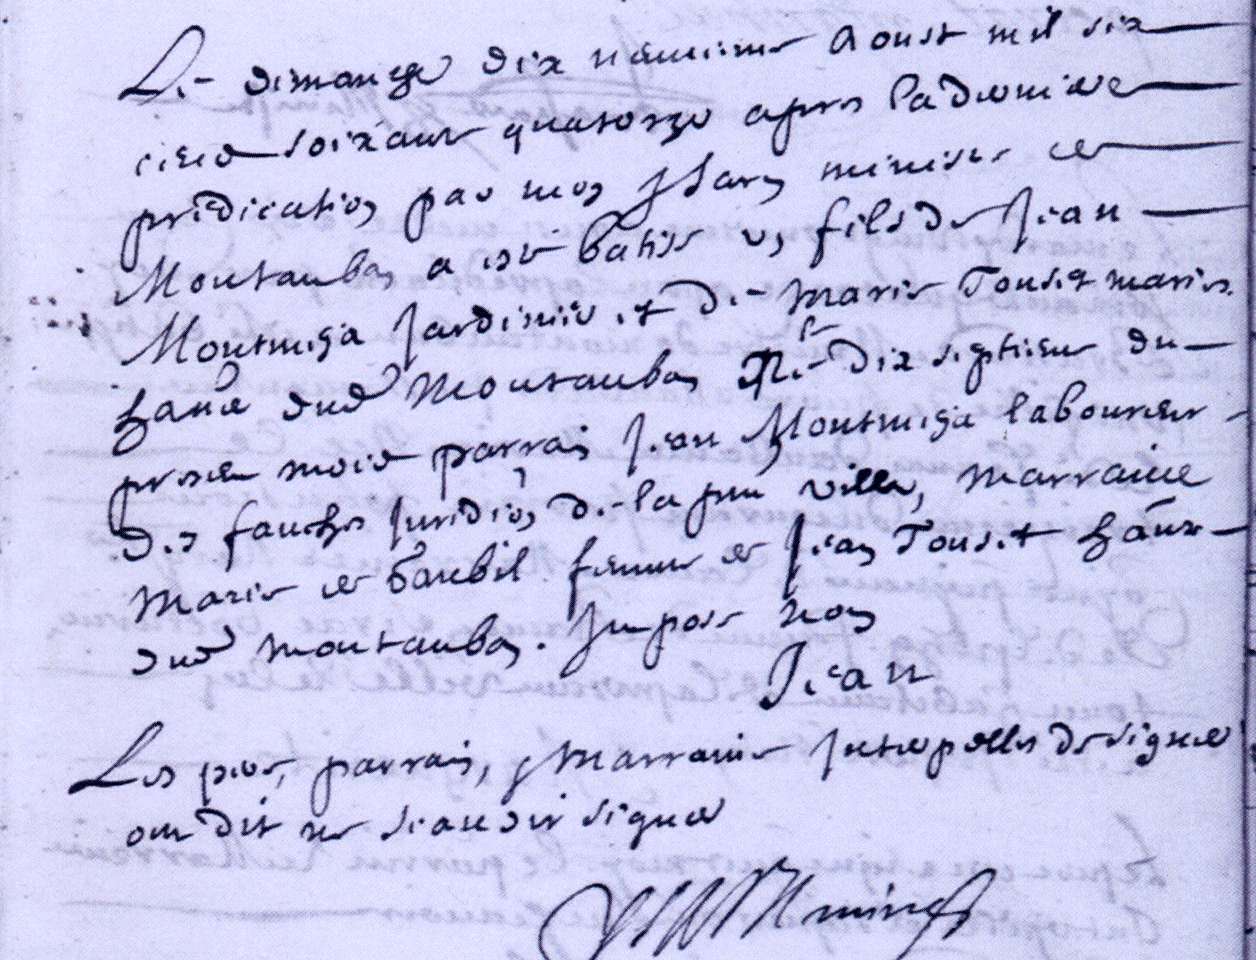 Le dimanche dix neuviesme Aoust mil six
cens soixante quatorze apres la derniere
predication par moy Isarn ministre de
Montauban a esté batise un fils de Jean
Jardinier et de Marie Touset maries
habns dud Montauban Né le dix septieme du
pnt mois parrain Jean laboureur
des fauxbs de la pnt ville, Marraine
Marie de femme de Jean Touset habnt
dud Montauban. Imposé nom
Jean
Les pere, parrain, & Marraine Interpelles de signer
ont dit ne scauoir signer